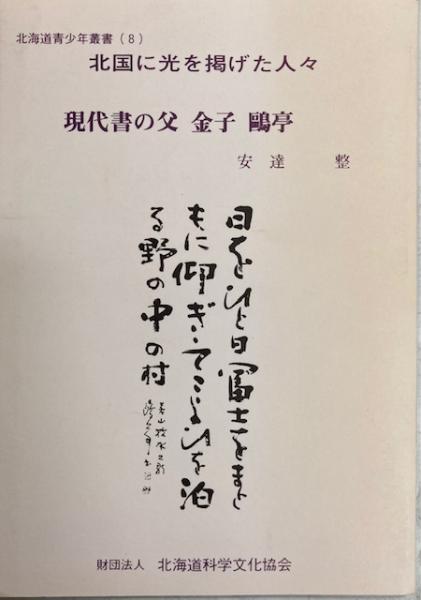 北海道青少年叢書(8)
北国に光を掲げた人々
現代書の父 金子 鷗亭
安達 整
日をひと日富士をまと
もに仰ぎ
を泊
る野の中の村
財団法人 北海道科学文化協会